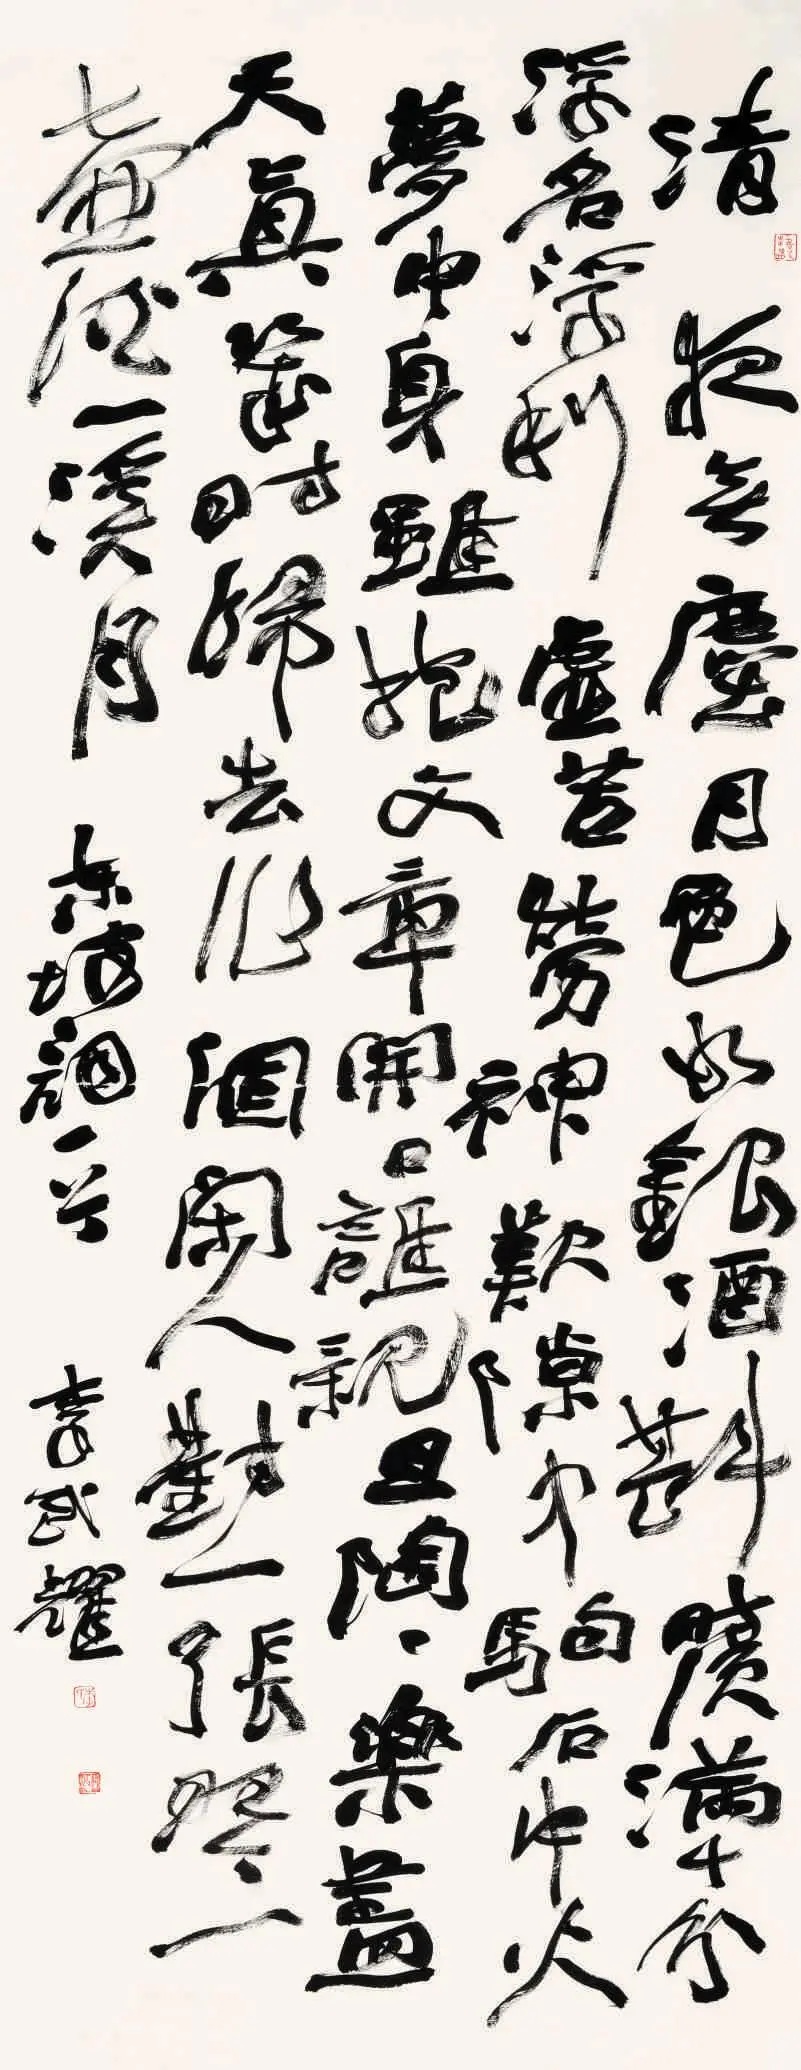 清夜無塵月色如銀酒斟滿十分
浮名浮利虛苦勞神歎隙中駒石中火
夢中身雖抱文章開口誰親且陶〻樂盡
天真幾時歸去作個閑人對一張琴一
壺酒一溪月 東坡詞一首 李武耀